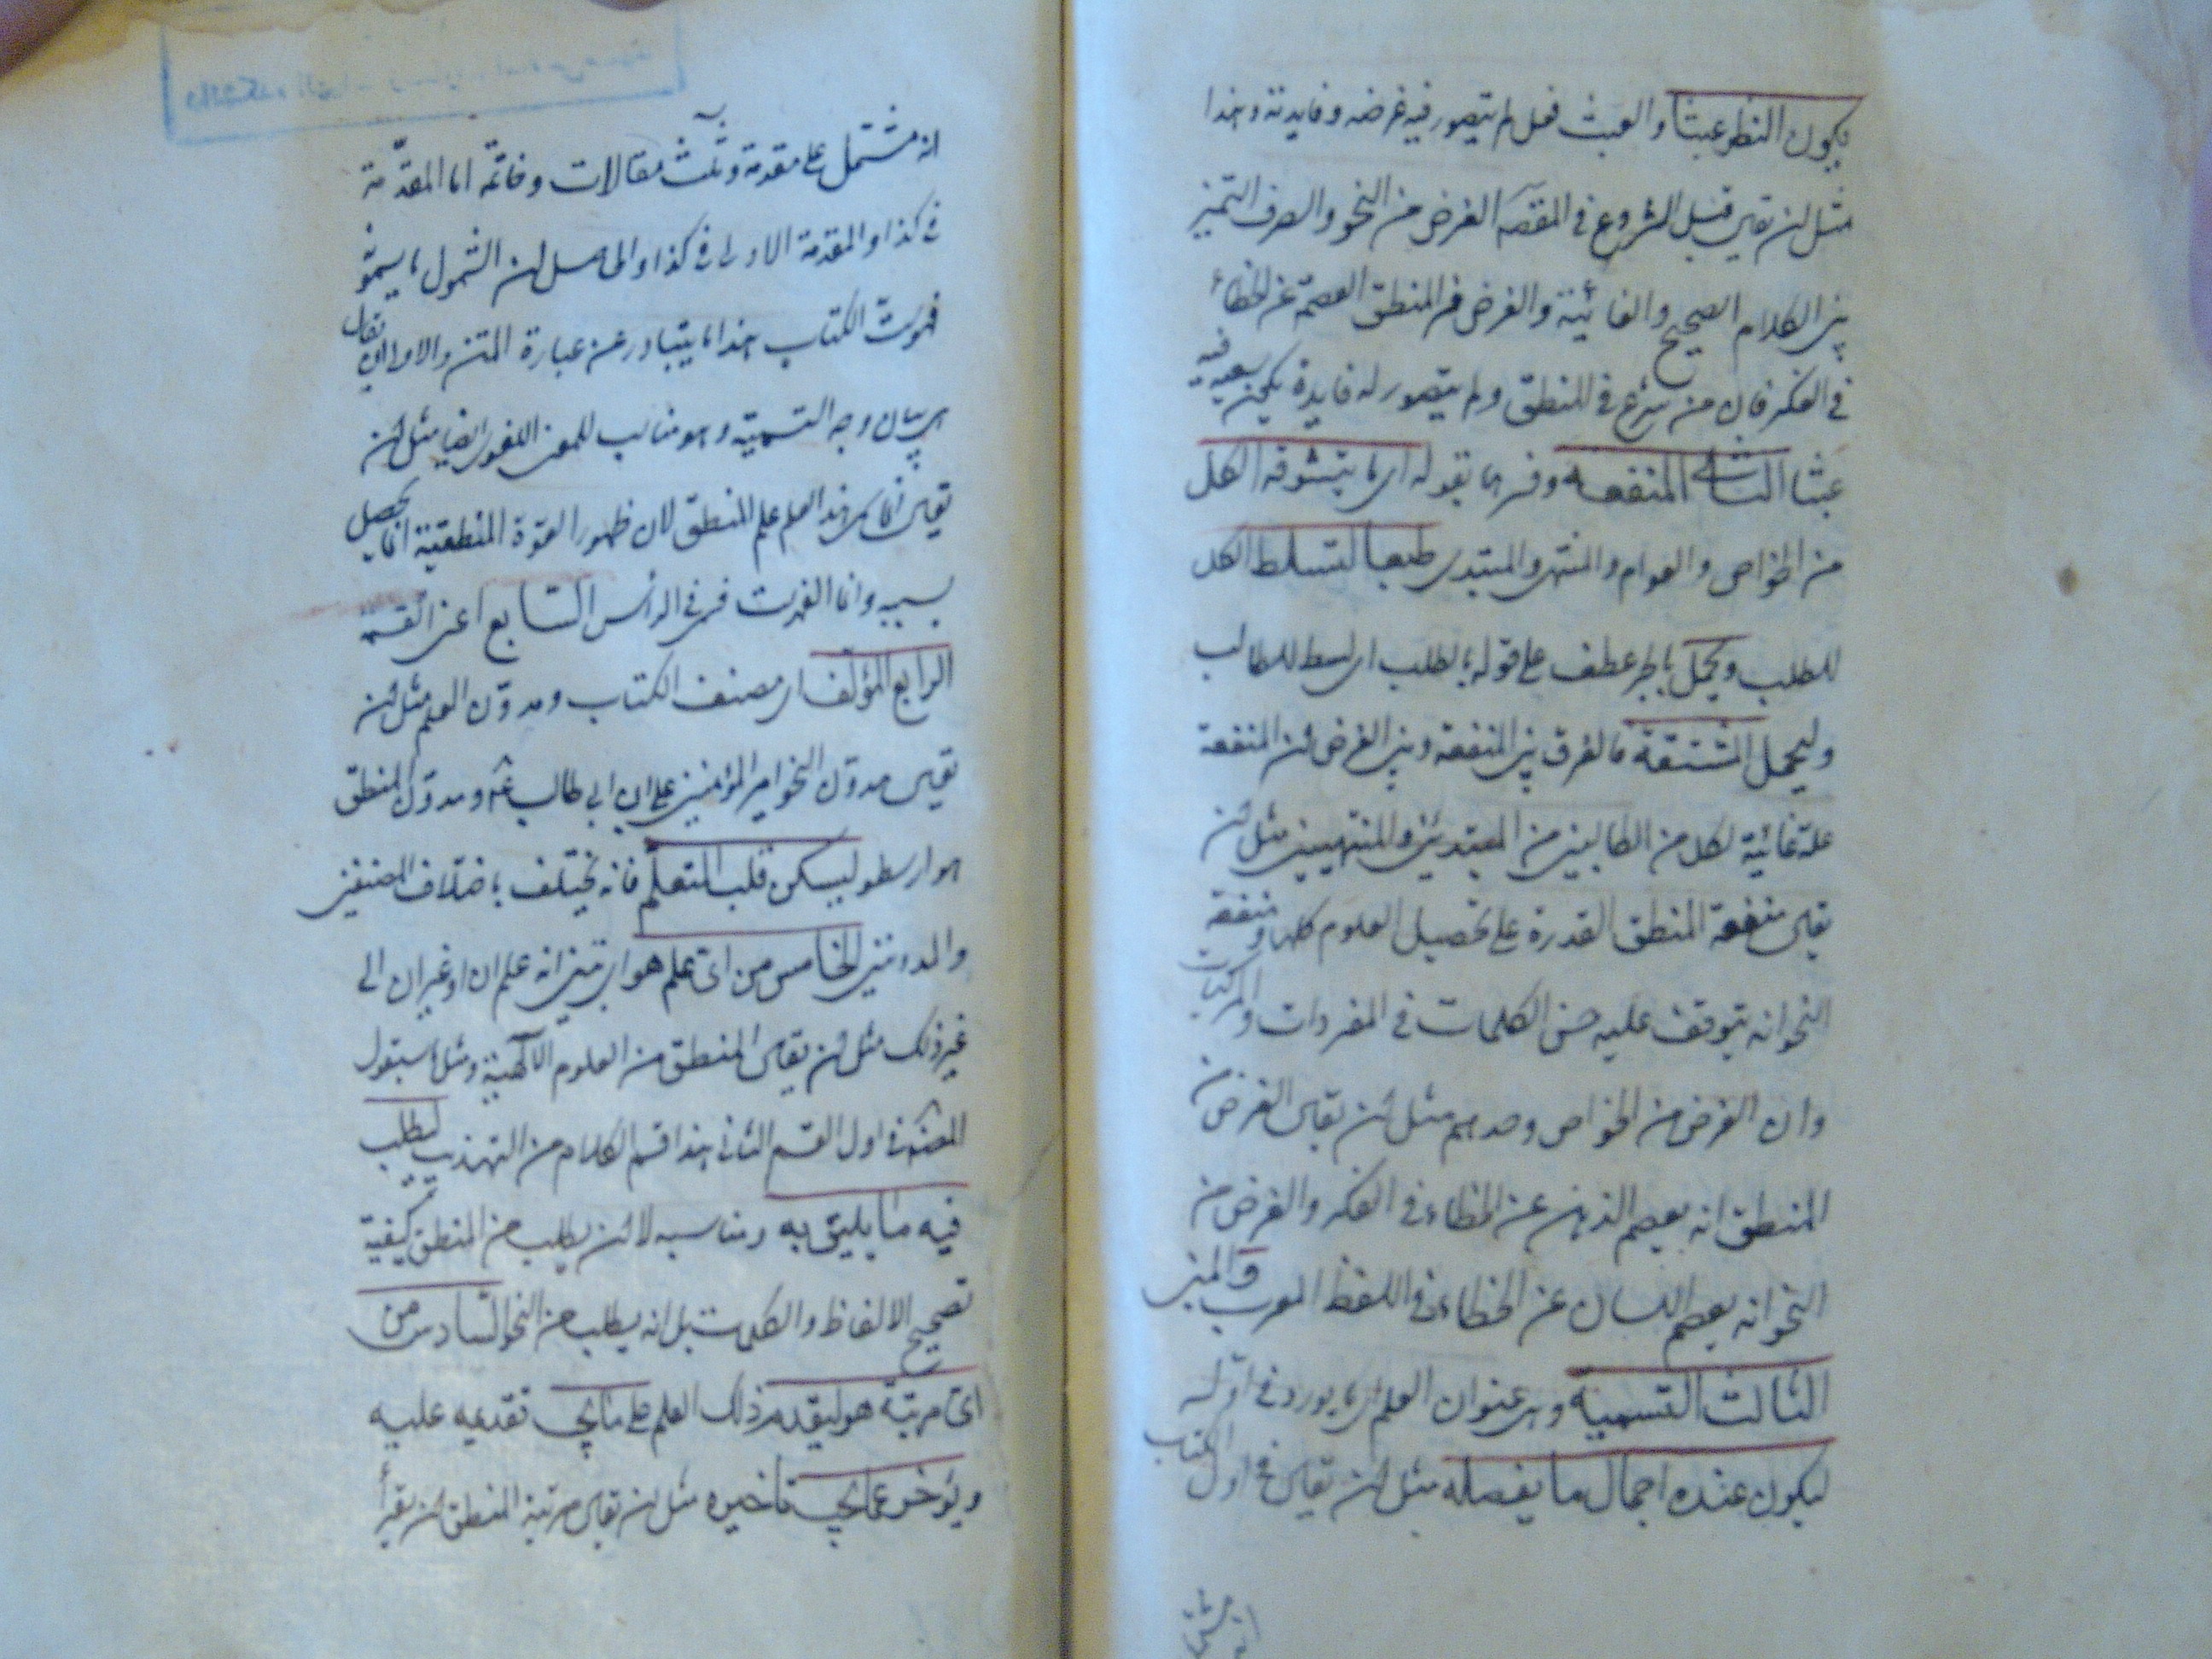 يكون النظر عبثا والعبث فعل لم يتصور فيه غرضه وفايدته وهذا
مثل ان يقال قبل الشروع في المقصد الغرض من النحو والصرف التميز
بين الكلام الصحيح والغرض من المنطق العصمة عن الخطاء
في الفكر فان من شرع في المنطق ولم يتصور له فايدة يكون سعيه فيه
عبثا الثاني المنفعة وفسرها بقوله اى ما يتشوقه الكل
من الخواص والعوام والمنتهى والمبتدى طبعا لتسلط الكل
للطلب ويحمل بالجر عطف على قوله بالطلب اى لسط للطالب
وليحمل المشقة فالفرق بين المنفعة وبين الغرض ان المنفعة
علة غائية لكل من الطالبين من المبتدئين والمنتهيين مثل ان
يقال منفعة المنطق القدرة على تحصيل العلوم كلها ومنفعة
النحو انه يتوقف عليه حسن الكلمات في المفردات والمركبات
وان الغرض من الخواص وحدهم مثل ان يقال الغرض من
المنطق انه يعصم الذهن عن الخطاء في الفكر والغرض من
النحو انه يعصم اللسان عن الخطاء في اللفظ المعرب والمبنى
الثالث التسمية وهى عنوان العلم اى ما يورد في اوله
ليكون عنده اجمال ما يفصله مثل ان يقال في اول الكتاب
انه مشتمل
انه مشتمل على مقدمة وثلث مقالات وخاتمة اما المقدّمة
في كذا والمقدمة الاولى في كذا والحاصل ان الشمول ما يسمى
فهرست الكتاب هذا ما يتبادر عن عبارة المتن والاولى ان يقال
هى بيان وجه التسمية وهو مناسب للمعنى اللغوى ايضا مثل ان
يقال انما سمى هذا العلم علم المنطق لان ظهور القوّة المنطقيّة انما يحصل
بسببه واما الفهرست فهى في الرأس السابع اعنى القسمة
الرابع المؤلف اى مصنف الكتاب ومدوّن العلم مثل ان
يقال مدوّن النحو امير المؤمنين على ابن ابى طالب ع م ومدوّن المنطق
هو ارسطو ليسكن قلب المتعلم فانه يختلف باختلاف المصنفين
والمدونين الخامس من اى علم هو اى تبين انه علم ان او غير ان الى
غير ذلك مثل ان يقال المنطق من العلوم الآلية ومثل سيقول
المصنف في اول القسم الثانى هذا قسم الكلام من التهذيب ليطلب
فيه ما يليق به ومناسبه لا ان يطلب من المنطق كيفية
تصحيح الالفاظ والكلمت بل انه يطلب من النحو السادس من
اى مرتبة هو ليقدم ذلك العلم على ما يجب تقديمه عليه
ويؤخر عما يجب تاخيره مثل ان يقال مرتبة المنطق ان يقرأ